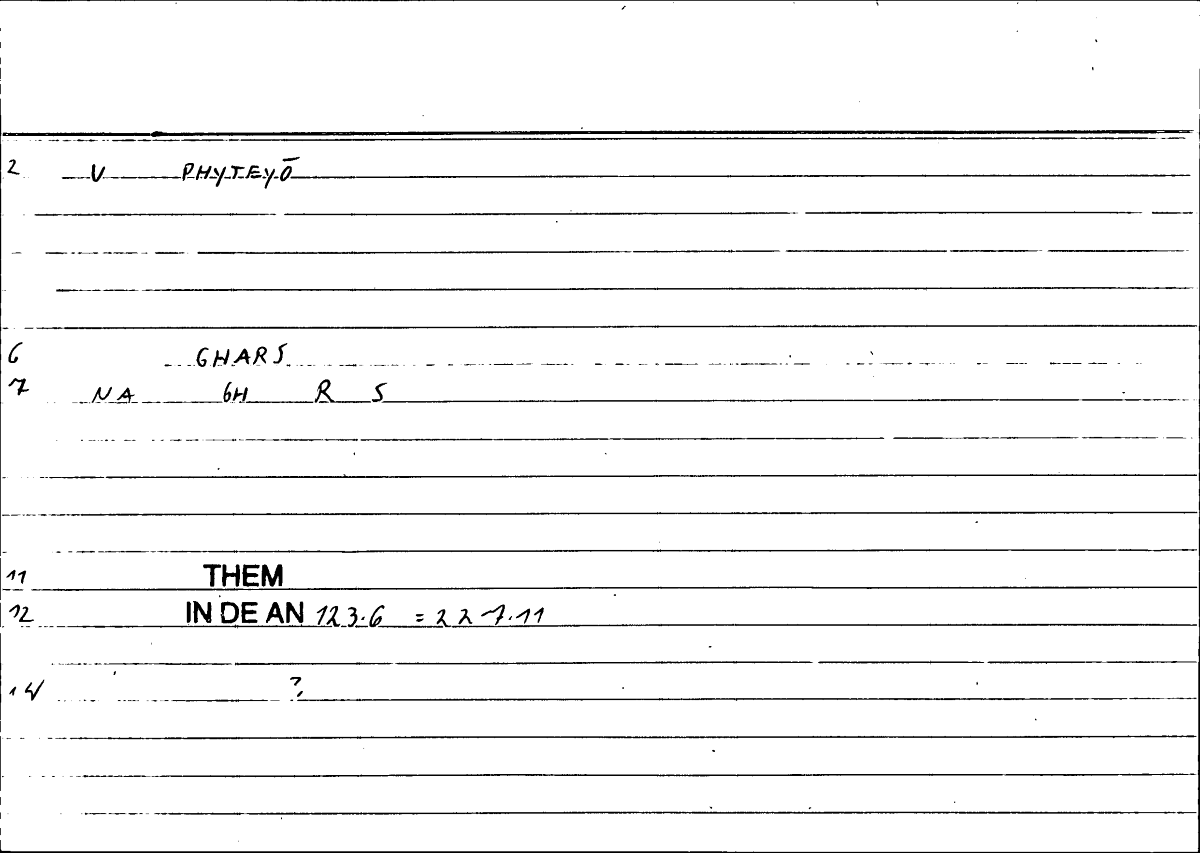 2 V PHYTEYŌ
6 GHARS
7 NA GH R S
11 THEM
12 IN DE AN 123.6 = 227.11
14 ?